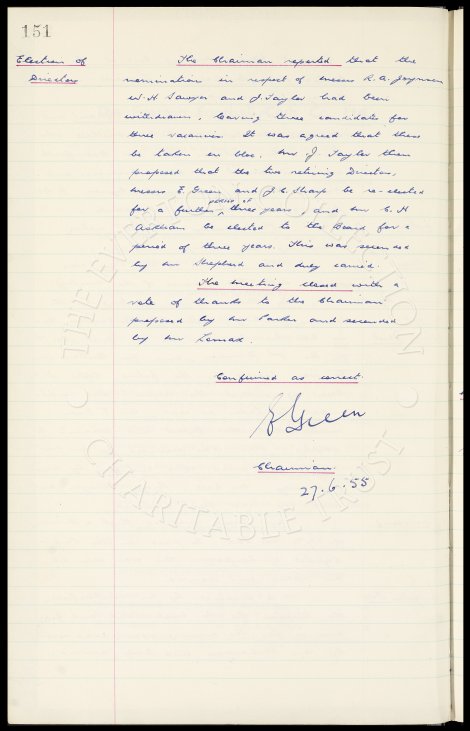 151
Election of
Directors
The Chairman reported that the
nomination in respect of messrs R. A. Jaynson
W. H. Sawyer and J. Taylor had been
withdrawn, leaving three candidates for
three vacancies. It was agreed that these
be taken en bloc. Mr J Taylor then
proposed that the two retiring Directors,
messrs E. Green and J. C. Sharp be re-elected
for a further period of three years, and Mr C. H
Askham be elected to the Board for a
period of three years. This was seconded
by Mr Shepherd and duly carried.
The meeting closed with a
vote of thanks to the Chairman
proposed by Mr Parker and seconded
by Mr Lomax.
Confirmed as correct.
E Green
Chairman.
27.6.55
THE EVERTON COLLECTION
CHARITABLE TRUST